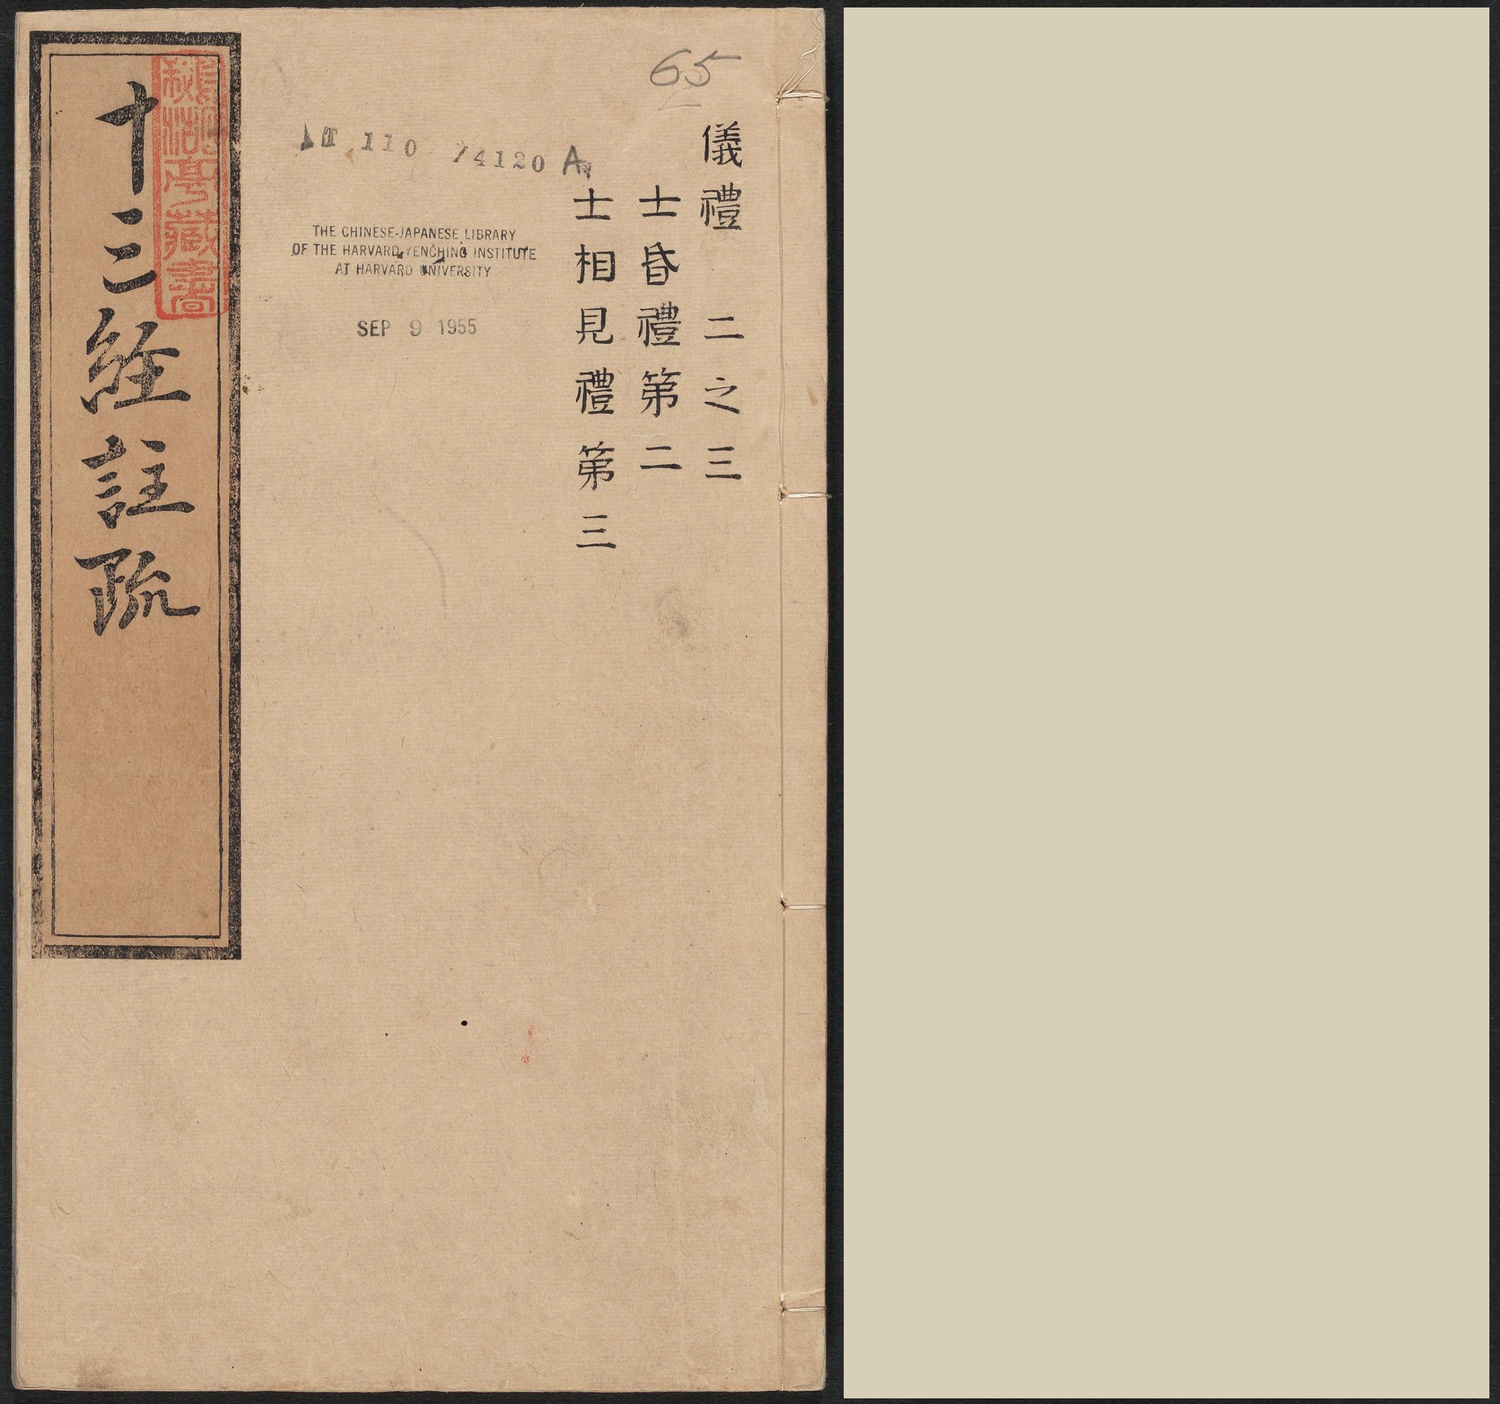 65
儀禮 二之三
士昏禮第二
士相見禮第三
110 74120 A
THE CHINESE-JAPANESE LIBRARY
OF THE HARVARD-YENCHING INSTITUTE
AT HARVARD UNIVERSITY
SEP 9 1955
十三經註疏
亭藏書